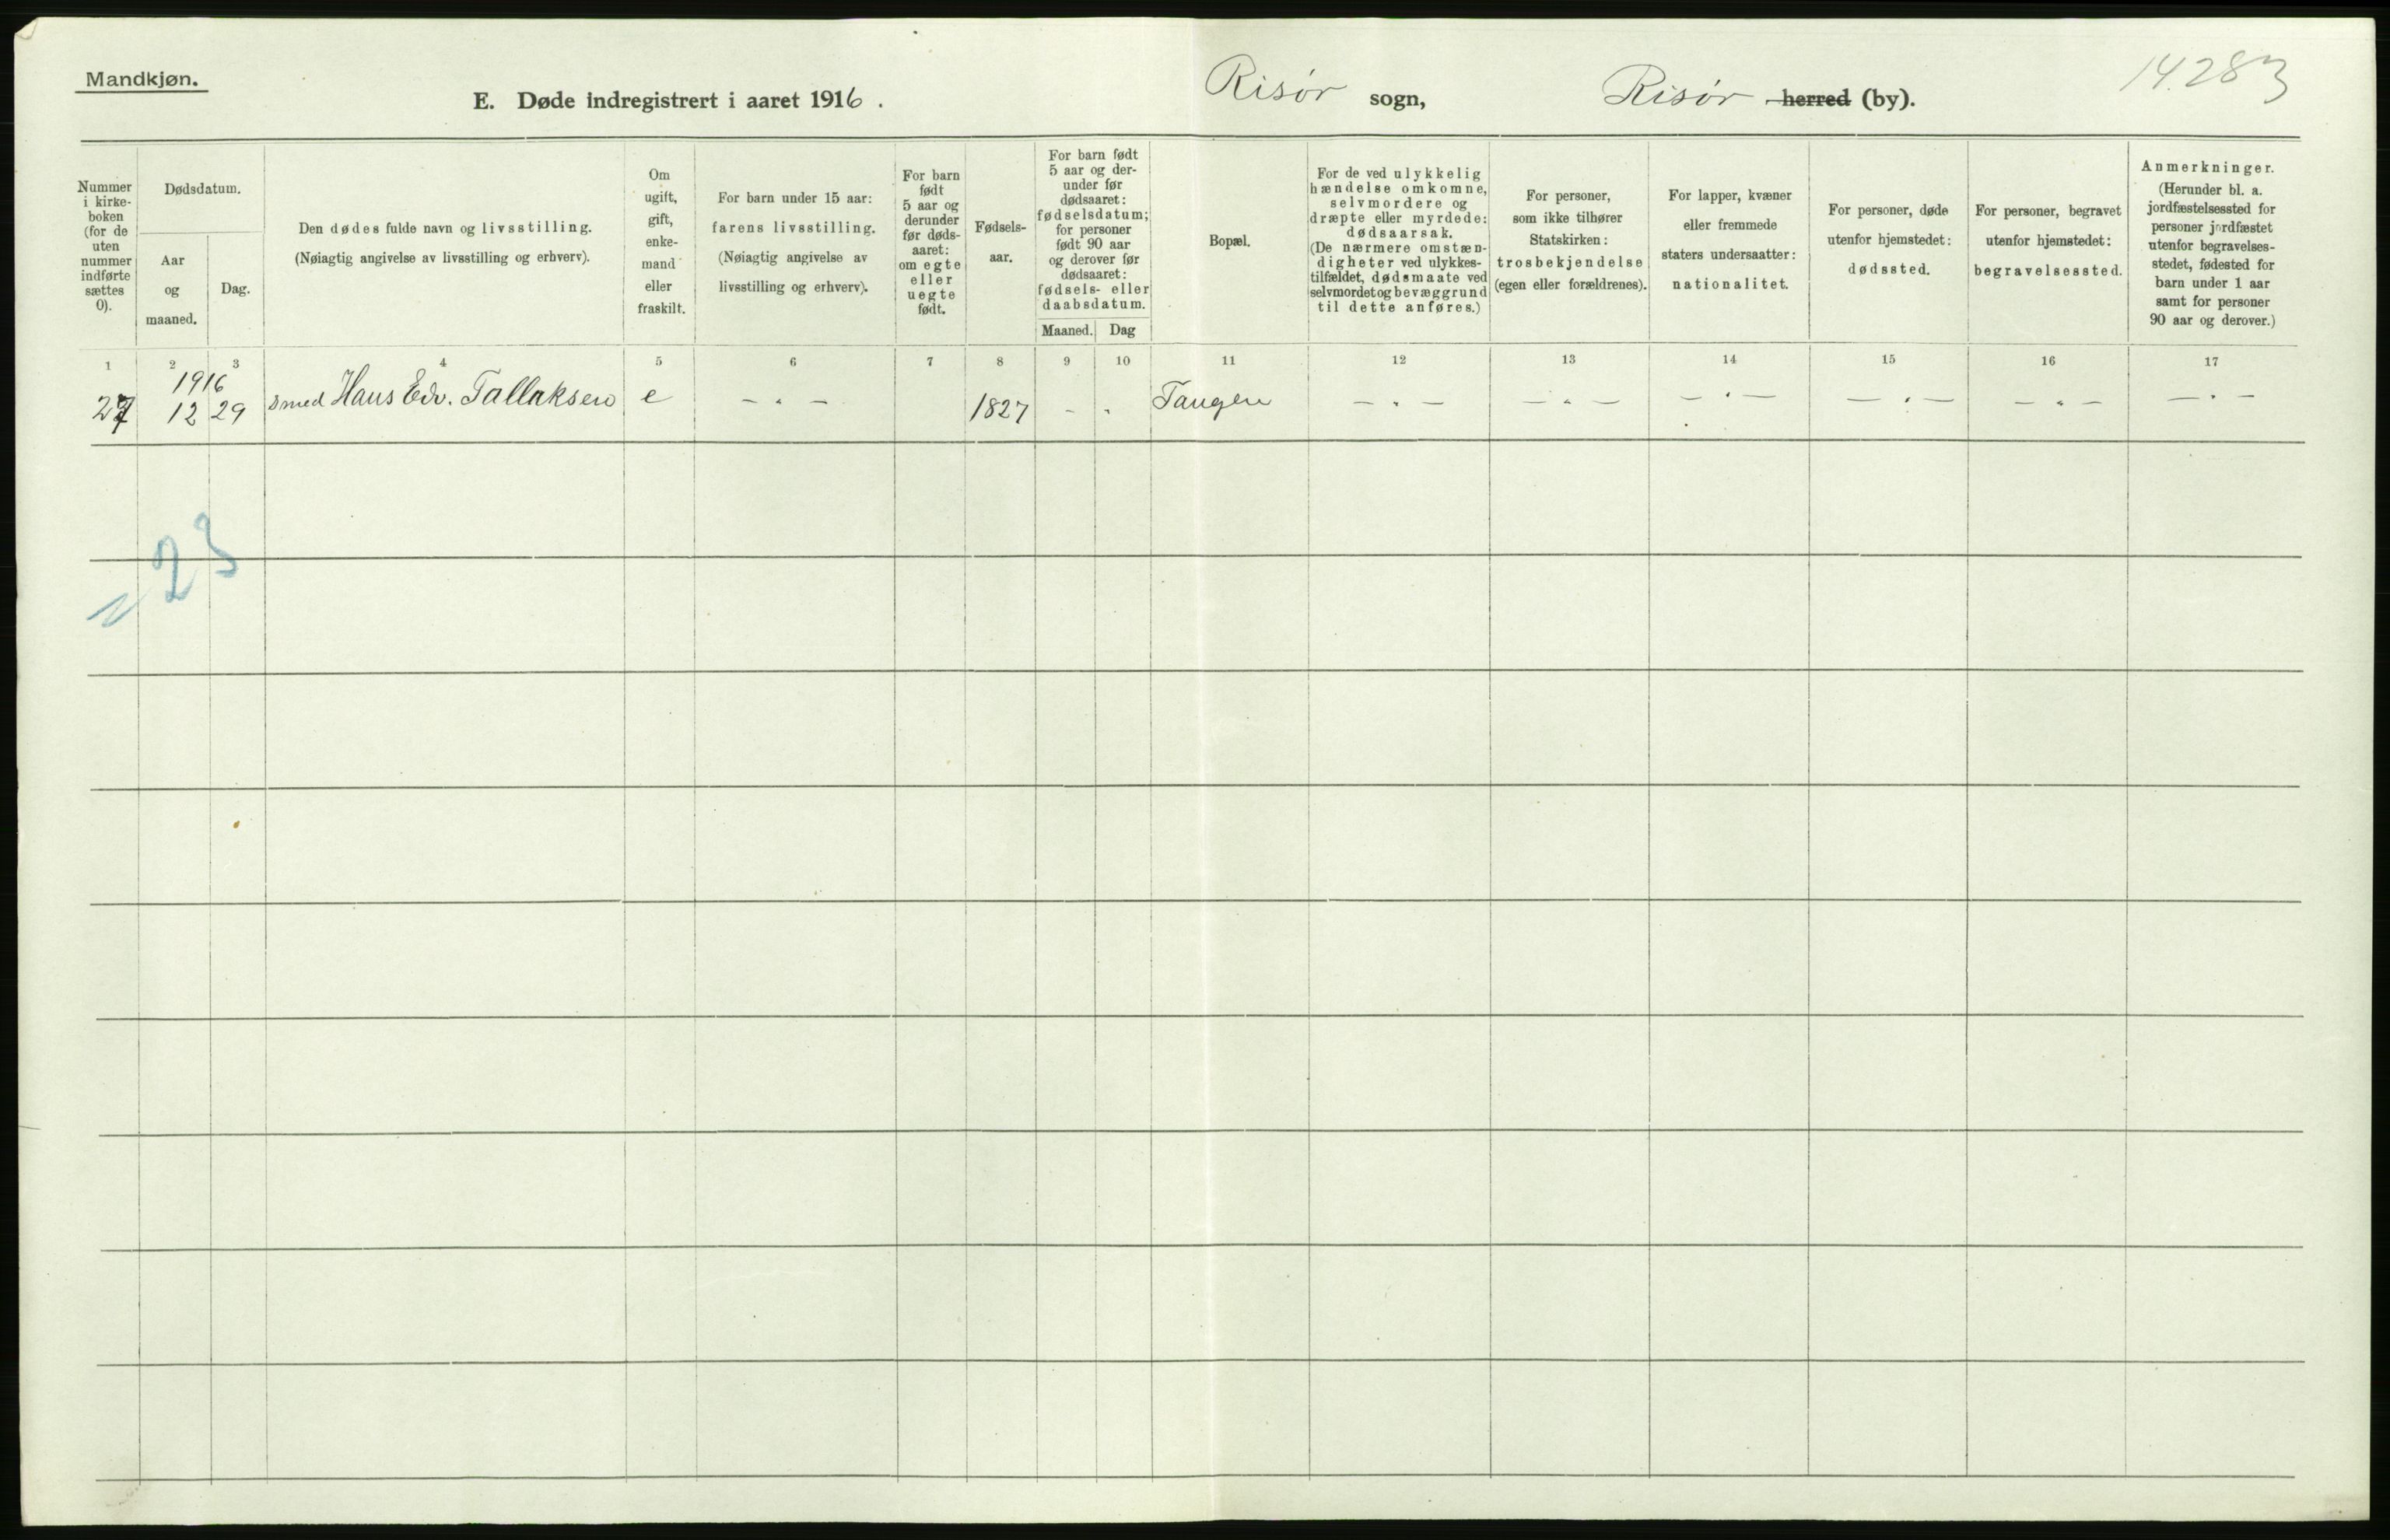 Mandkjøn.
E. Døde indregistrert i aaret 1916. Risør sogn, Risør herred (by).
14.283
Nummer i kirke-boken (for de uten nummer indførte sættes 0).
Dødsdatum.
Aar og maaned.
Dag.
Den dødes fulde navn og livsstilling.
(Nøiagtig angivelse av livsstilling og erhverv).
Om ugift, gift, enke-mand eller fraskilt.
For barn under 15 aar:
farens livsstilling.
(Nøiagtig angivelse av livsstilling og erhverv).
For barn født 5 aar og derunder før døds-aaret: om egte eller uegte født.
Fødsels-aar.
For barn født 5 aar og der-under før dødsaaret: fødselsdatum; for personer født 90 aar og derover før dødsaaret: fødsels- eller daabsdatum.
Maaned. Dag
Bopæl.
For de ved ulykkelig hændelse omkomne, selvmordere og dræpte eller myrdede: dødsaarsak.
(De nærmere omstæn-digheter ved ulykkes-tilfældet, dødsmaate ved selvmordet og bevæggrund til dette anføres.)
For personer, som ikke tilhører Statskirken: trosbekjendelse (egen eller forældrenes).
For lapper, kvæner eller fremmede staters undersaatter: nationalitet.
For personer, døde utenfor hjemstedet: dødssted.
For personer, begravet utenfor hjemstedet: begravelsessted.
Anmerkninger.
(Herunder bl. a. jordfæstelsessted for personer jordfæstet utenfor begravelses-stedet, fødested for barn under 1 aar samt for personer 90 aar og derover.)
1 2 3 4 5 6 7 8 9 10 11 12 13 14 15 16 17
1916
27 12 29 Smed Hans Edv. Tallaksen e - " - 1827 - " Tangen - " - - " - - " - - " - - " - - " -
23